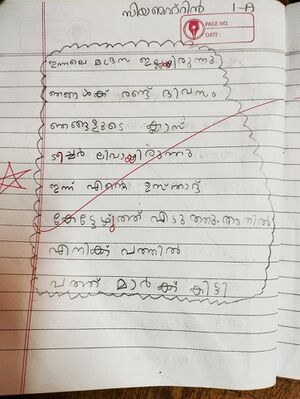 സിയമെഹ്റിൻ 1-A
PAGE NO.
DATE:
ഇന്നലെ മദ്റസ ഇല്ലായിരുന്നു
ഞങ്ങൾക്ക് രണ്ട് ദിവസം
ഞങ്ങളുടെ ക്ലാസ്
ടീച്ചർ ലീവായിരുന്നു
ഇന്ന് എന്റെ ഉസ്താദ്
കേട്ടെഴുത്ത് എടുത്തു. അതിൽ
എനിക്ക് പത്തിൽ
പത്ത് മാർക്ക് കിട്ടി